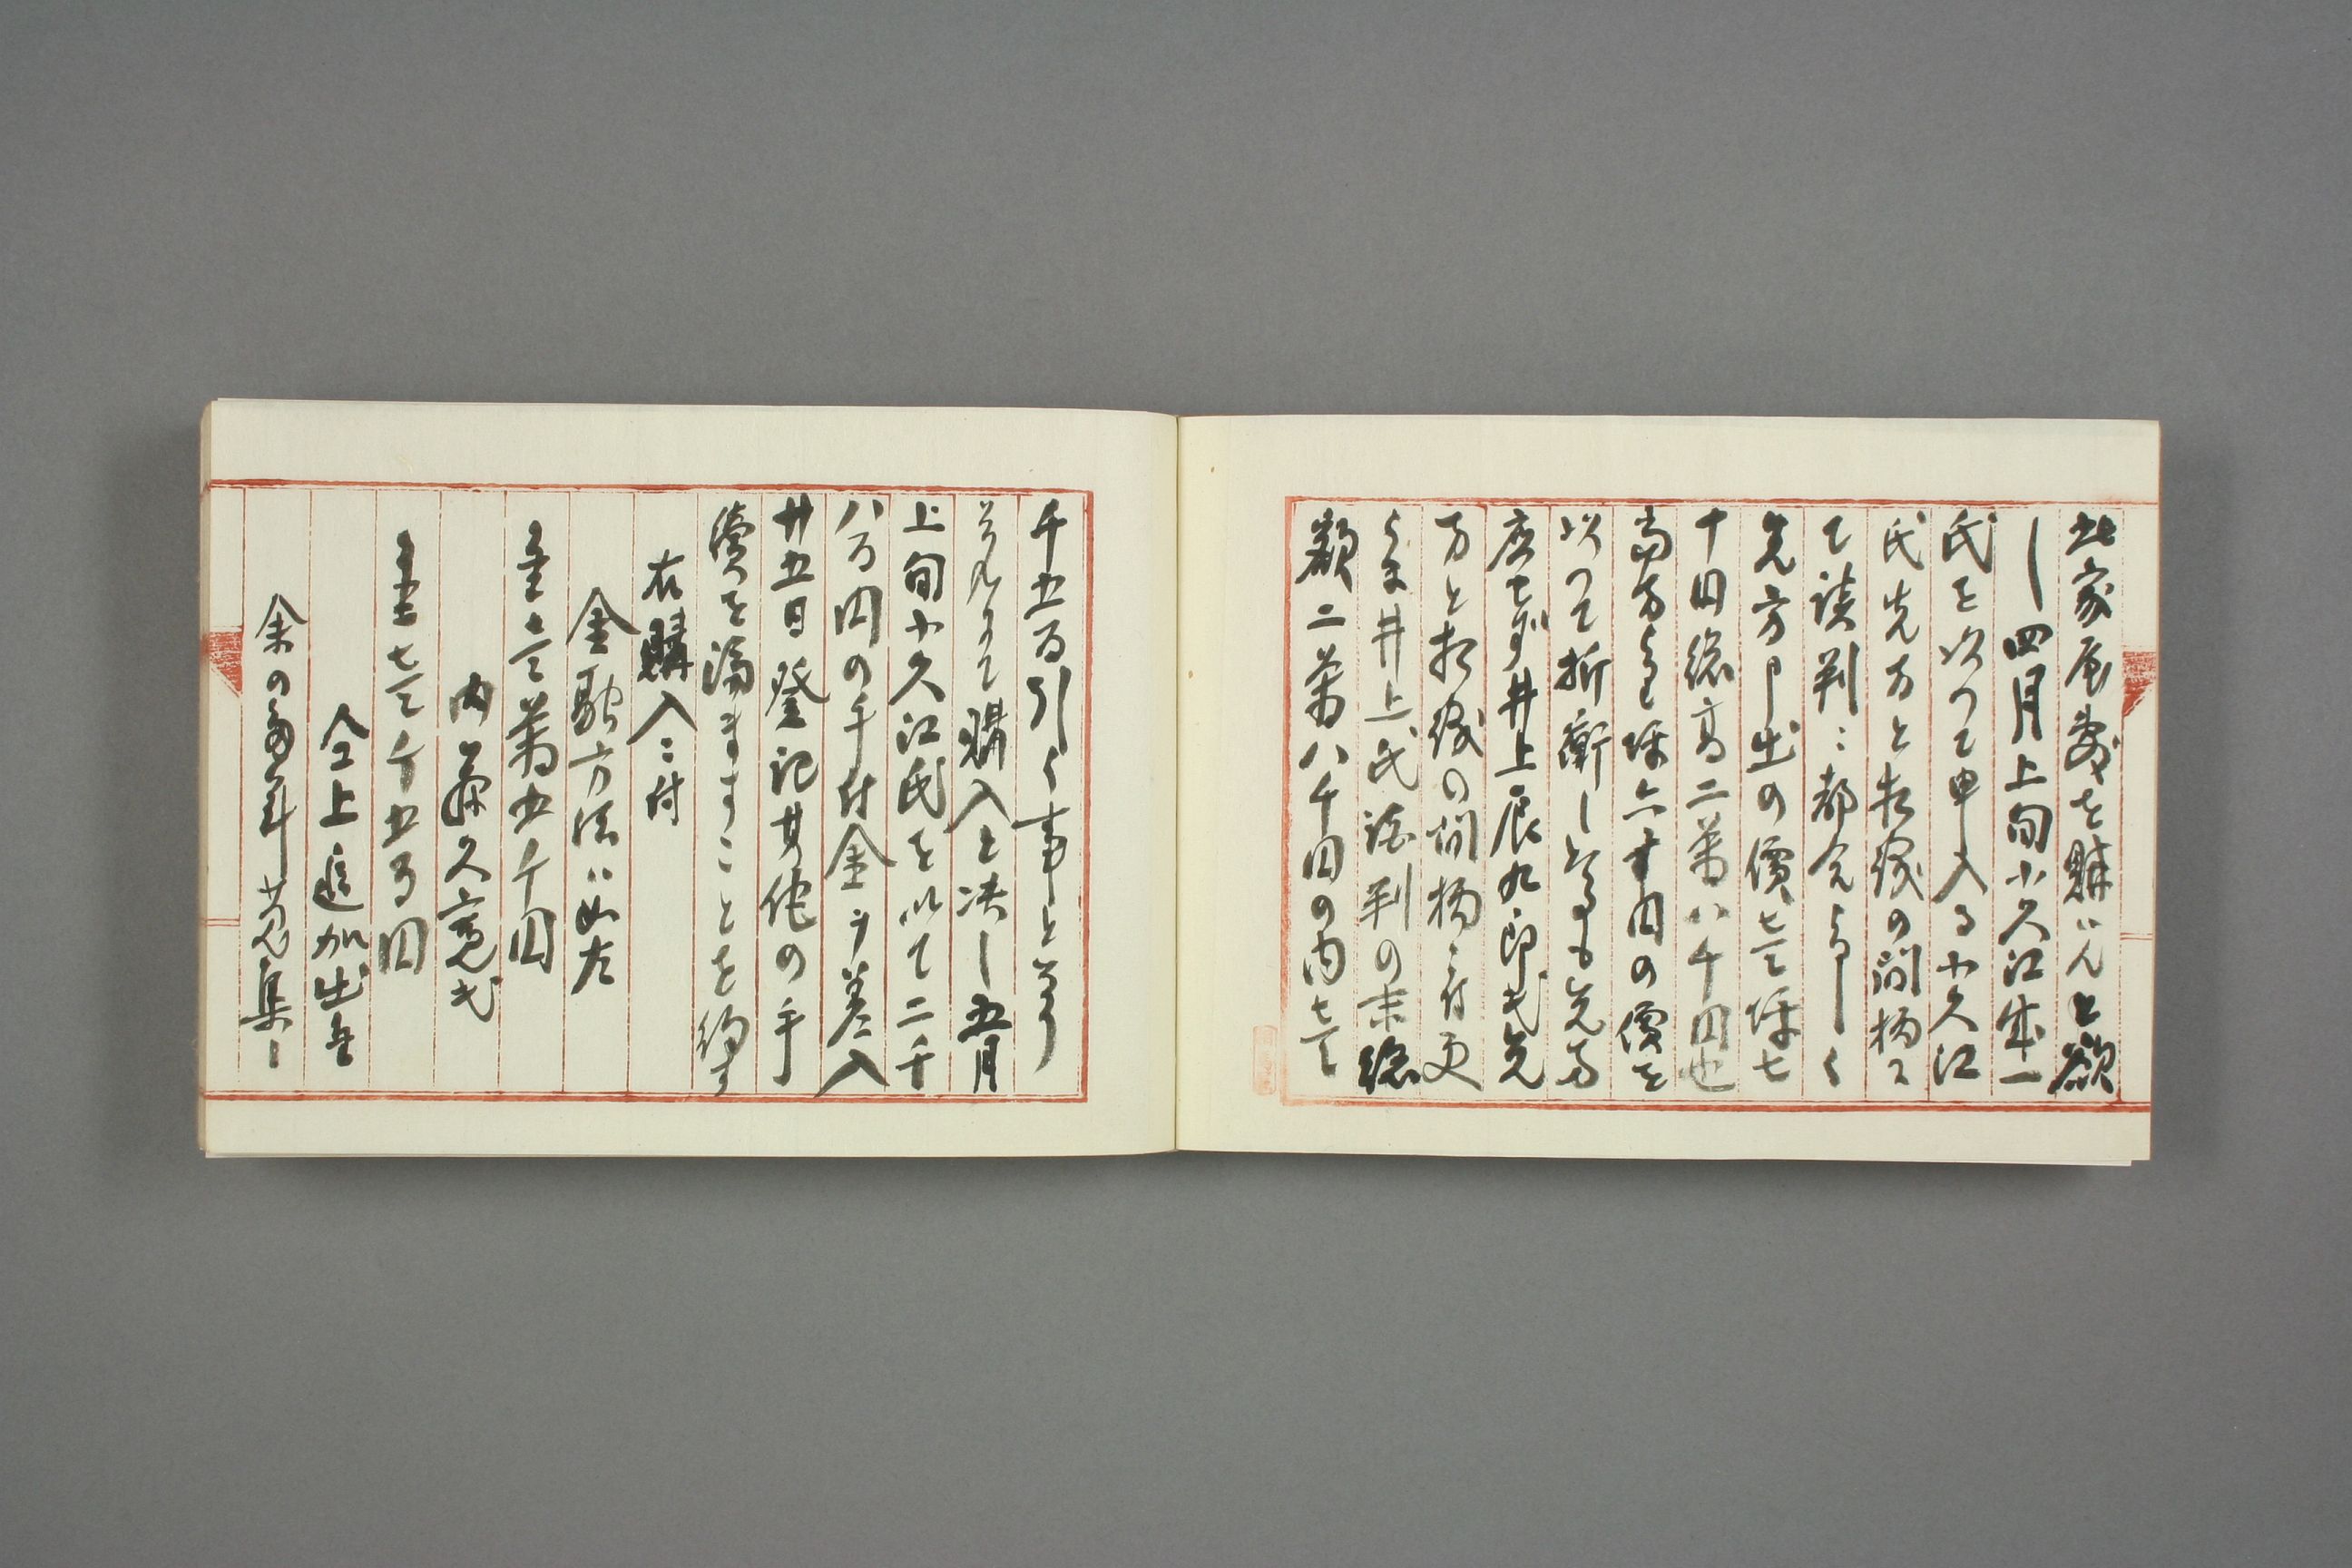 此家屋敷を購はんと欲
し四月上旬小久江成一
氏を以つて申入る小久江
氏先方と親教の間柄に
て談判に都合よろしく
先方申出の價は坪七
十円總高二萬八千円也
当方よりは坪六十円の價を
以つて折衝しけるも先方
応せず井上辰九郎氏先
方と親教の間柄に付更
によ井上氏談判の末總
額二萬八千円の内
千五百引く事となり
購入と决し五月
上旬小久江氏を以て二千
八百円の手付金ヲ差入
廿五日登記其他の手
續を済ますことを約す
右購入に付
金融方法は如左
金壱萬五千円
内藤久寛氏
金壱千五百円
仝上追加出金
余の多年蒐集し